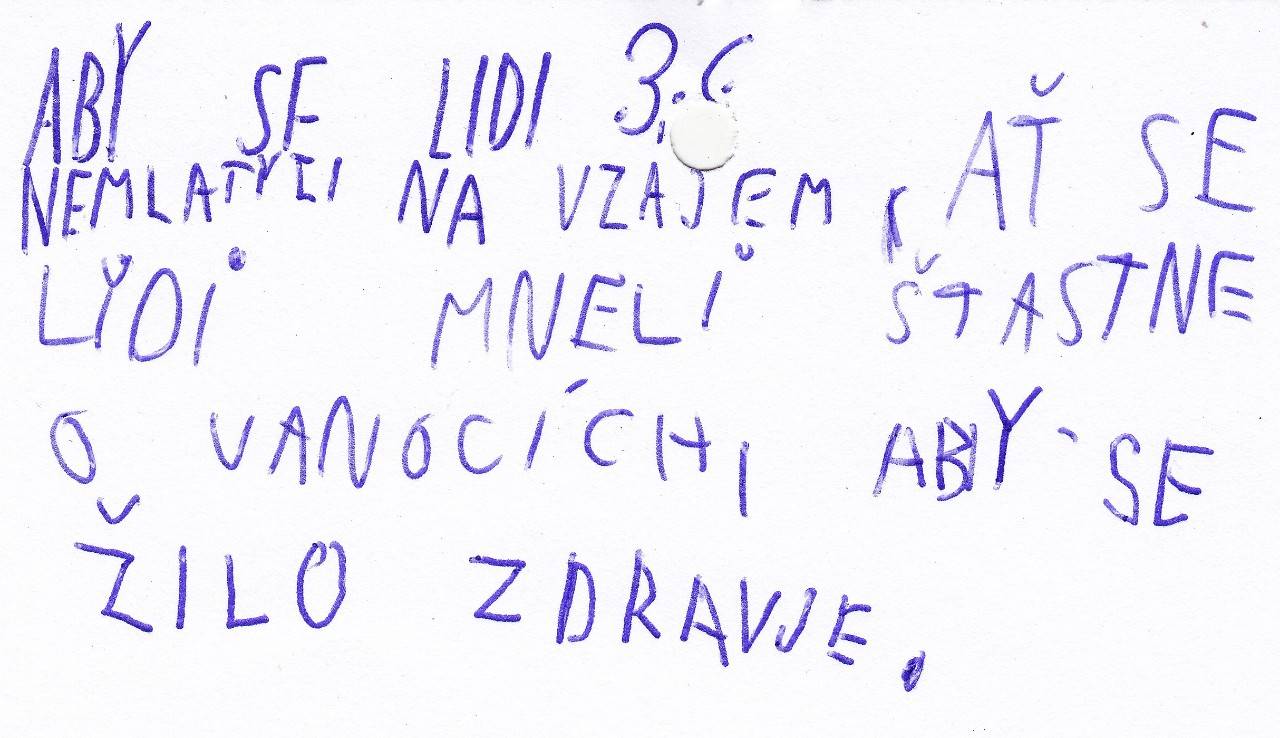 ABY SE LIDI 3.C
NEMLATYLI NA VZAJEM, AŤ SE
LIDI MNELI ŠTASTNE
O VANOCÍCH, ABY SE
ŽILO ZDRAVJE.